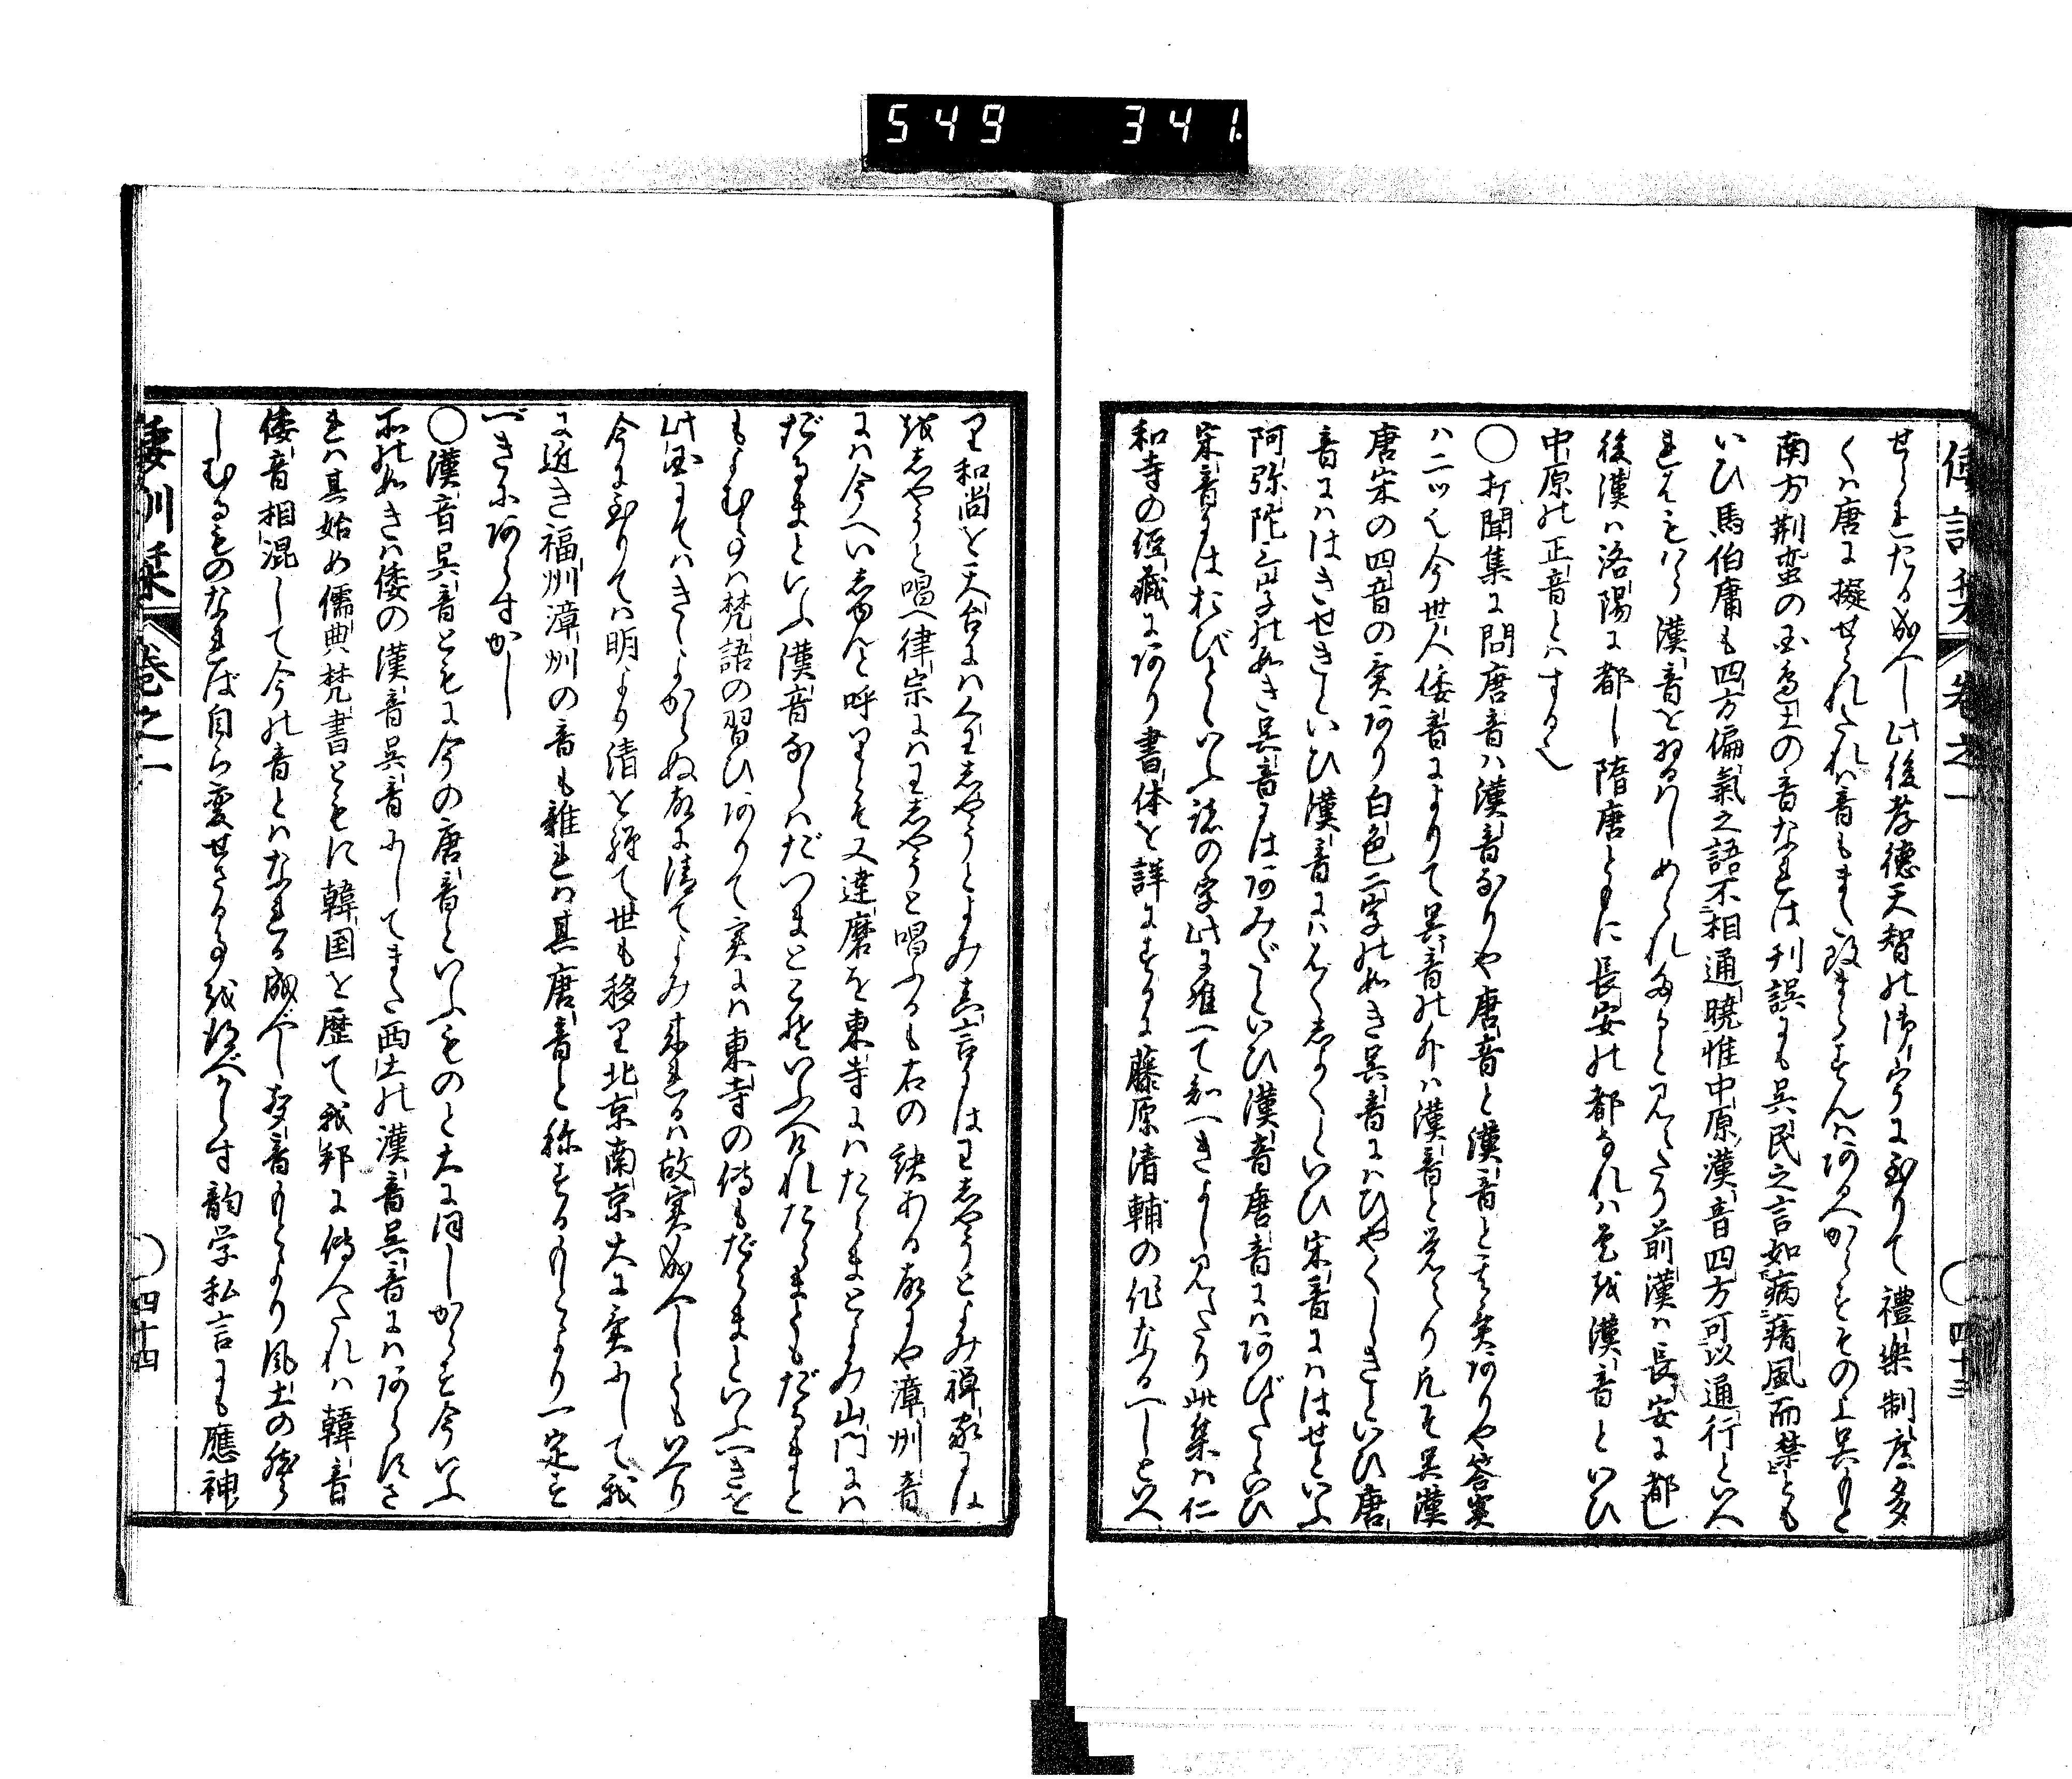 549 341
倭訓栞 巻之一 四十三
せられたる成へし此後孝徳天智の御宇に至りて禮樂制度多
くハ唐に擬せられたれハ音もまた改まらすんハあるへからすその上呉もと
南方荊蛮の国邊土の音なれは刊誤にも呉民之言如病瘖風而禁とも
いひ馬伯庸も四方偏氣之語不相通曉惟中原漢音四方可以通行といへ
れはもはら漢音を習ハしめられたると見えたり前漢ハ長安に都し
後漢ハ洛陽に都し隋唐ともに長安の都なれハ是を漢音といひ
中原の正音とハする也
○打聞集に問唐音ハ漢音なりや唐音と漢音と其実ありや答実
ハ二ッ也今世人倭音によりて呉音の外ハ漢音と覚えたり凡そ呉漢
唐宋の四音の実あり白色二字の如き呉音にハひやくしきといひ唐
音にハはきせきといひ漢音にハはくしよくといひ宋音にハはせといふ
阿弥陀三字の如き呉音にはあみだといひ漢音唐音にハあびたといひ
宋音にはおびとといふ諸の字此に准へて知へきよし見えたり此集ハ仁
和寺の經藏にあり書体を詳にするに藤原清輔の作なるへしといへ
り和尚を天台にハくわしやうとよみ真言にはわしやうとよみ禅家には
をしやうと唱へ律宗にハわしやうと唱ふるも右の訣ある故にや漳州音
にハ今へいしゆんと呼りとそ又達磨を東寺にハたるまとよみ山門にハ
だるまといふ漢音ならハだつまとこそいふへけれたるまともだるまと
もよむ事ハ梵語の習ひありて実にハ東寺の傳もだるまといふへきを
此国にてハきゝよからぬ故に清てよみ来れるハ故実成へしともいへり
今に至りてハ明より清を經て世も移り北京南京大に実にして我
に近き福州漳州の音も雜れハ其唐音と称するもとより一定す
べきにあらすかし
○漢音呉音ともに今の唐音といふものと大に同しからす今いふ
所の如きハ倭の漢音呉音にしてまた西土の漢音呉音にハあらすさ
れハ其始め儒典梵書ともに韓国を歴て我邦に傳へたれハ韓音
倭音相混して今の音とハなれる成べし聲音もとより風土の然ら
しむるものなれば自ら変せさる事を得べからす韵学私言にも應神
倭訓栞 巻之一 四十四